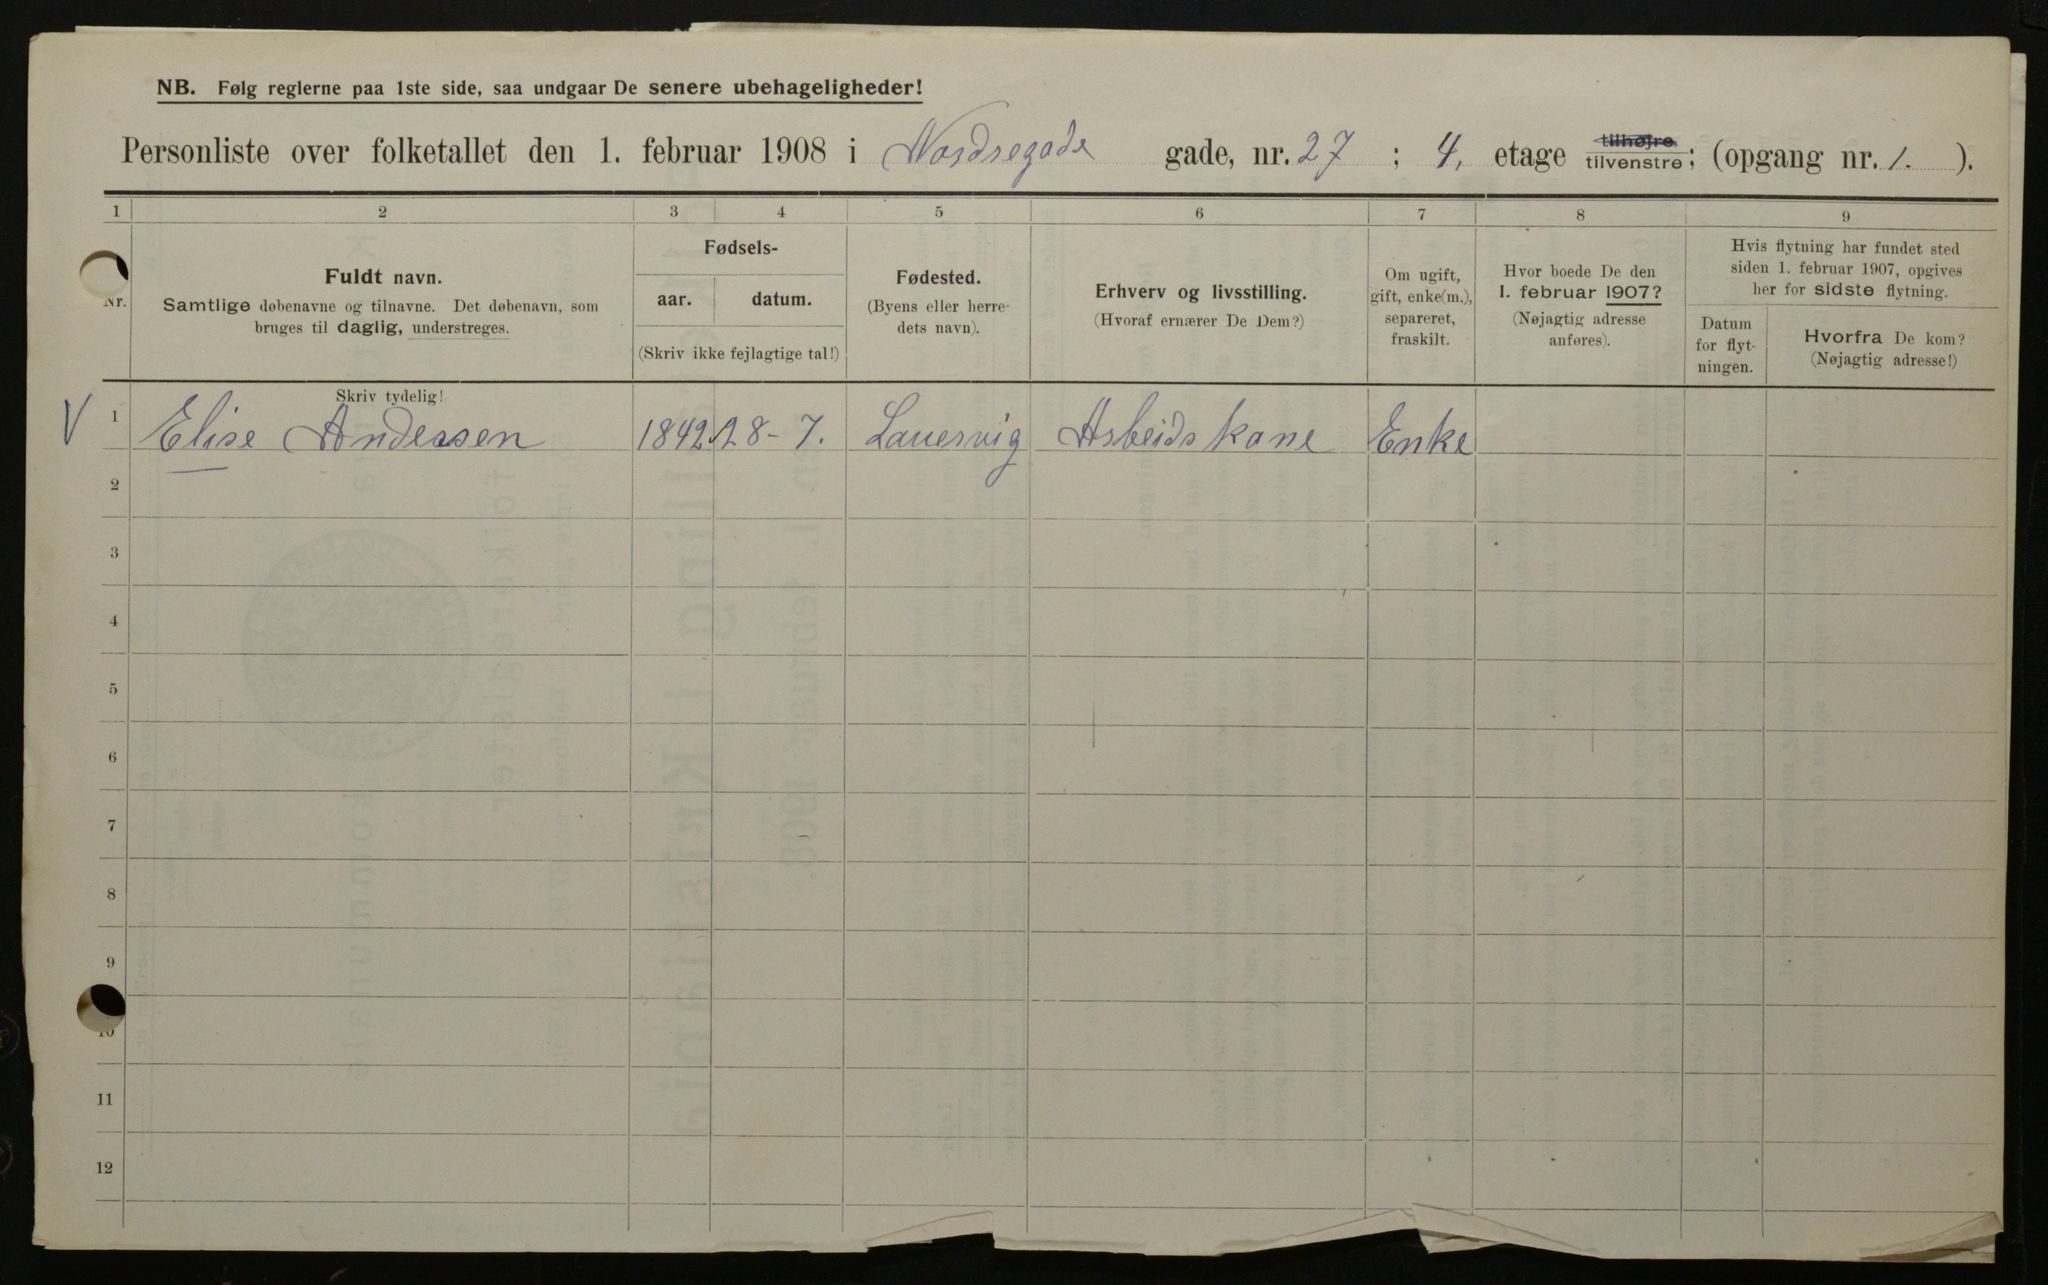 NB. Følg reglerne paa 1ste side, saa undgaar De senere ubehageligheder!
Personliste over folketallet den 1. februar 1908 i Nordregade gade, nr. 27 ; 4. etage tilhøjre tilvenstre; (opgang nr. 1. ).
1 2 3 4 5 6 7 8 9
Nr.
Fuldt navn.
Samtlige døbenavne og tilnavne. Det døbenavn, som
bruges til daglig, understreges.
Fødsels-
aar. datum.
(Skriv ikke fejlagtige tal!)
Fødested.
(Byens eller herre-
dets navn).
Erhverv og livsstilling.
(Hvoraf ernærer De Dem?)
Om ugift,
gift, enke(m.),
separeret,
fraskilt.
Hvor boede De den
1. februar 1907?
(Nøjagtig adresse
anføres).
Hvis flytning har fundet sted
siden 1. februar 1907, opgives
her for sidste flytning.
Datum
for flyt-
ningen.
Hvorfra De kom?
(Nøjagtig adresse!)
Skriv tydelig!
V 1 Elise Andersen 1842 28-7. Lauervig Arbeidskone Enke
2
3
4
5
6
7
8
9
10
11
12